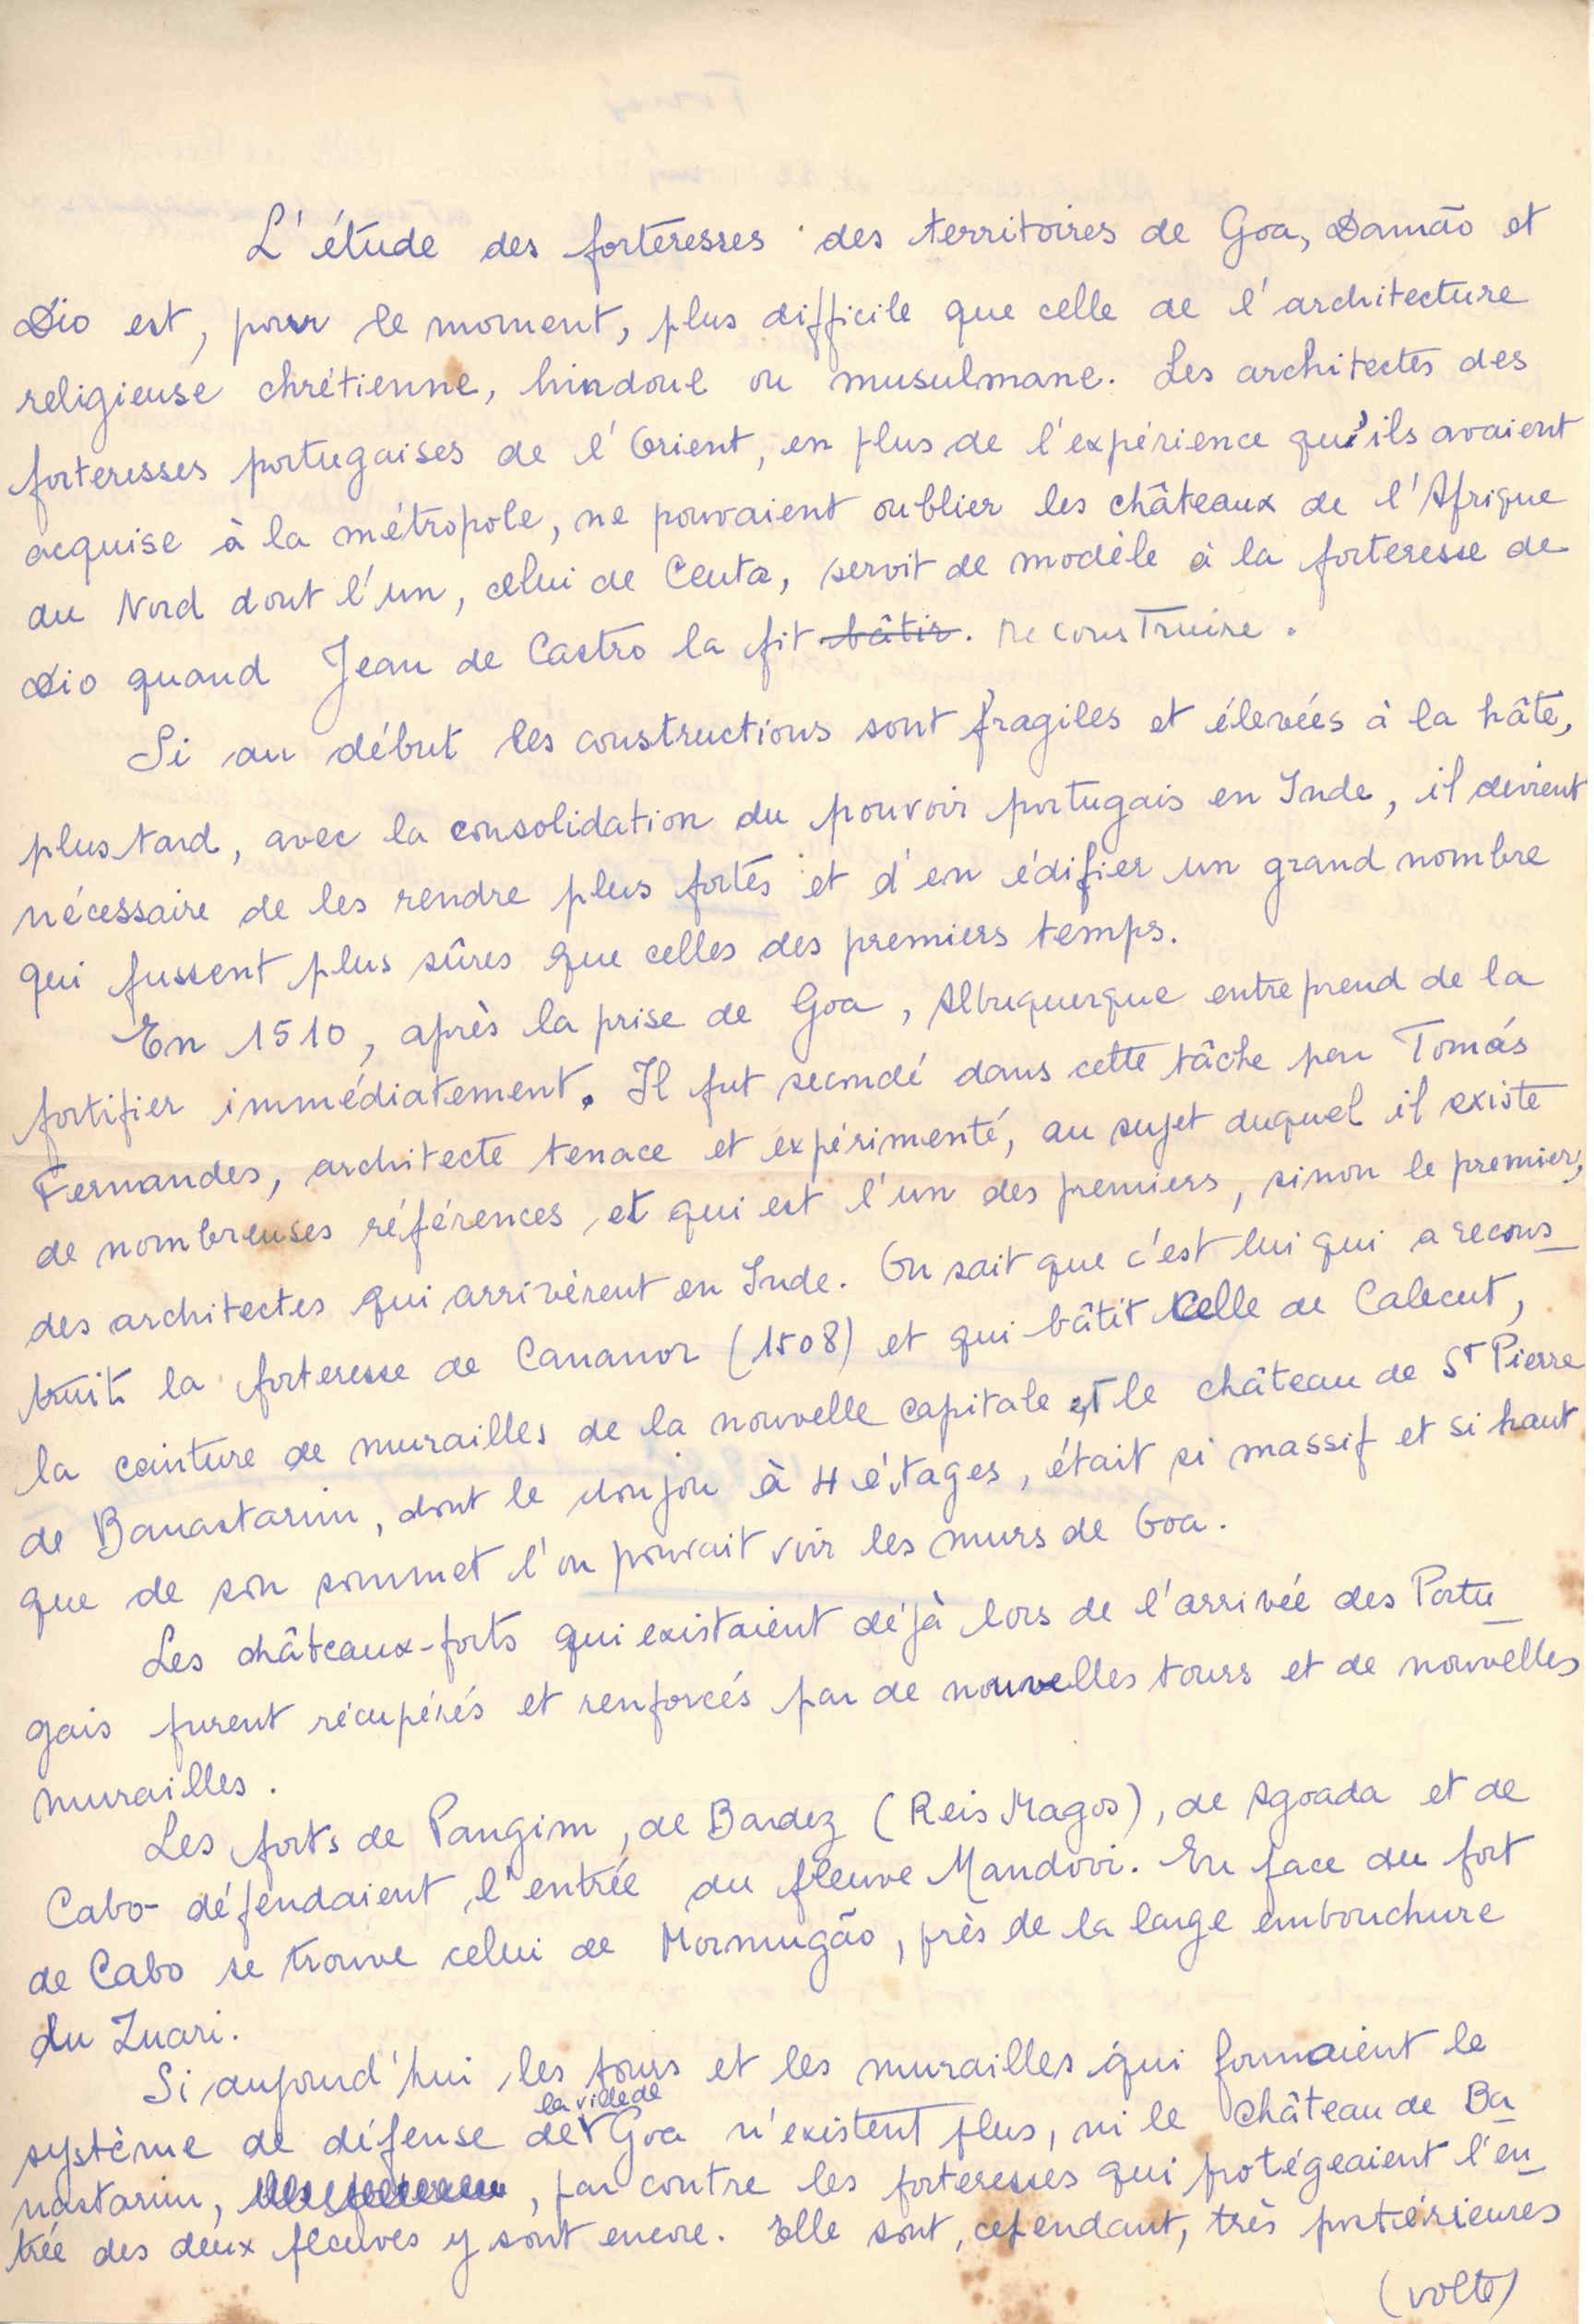 L'étude des forteresses des territoires de Goa, Damão et
Dio est, pour le moment, plus difficile que celle de l'architecture
religieuse chrétienne, hindoue ou musulmane. Les architectes des
forteresses portugaises de l'Orient, en plus de l'expérience qu'ils avaient
acquise à la métropole, ne pouvaient oublier les châteaux de l'Afrique
du Nord dont l'un, celui de Ceuta, servit de modèle à la forteresse de
Dio quand Jean de Castro la fit bâtir. reconstruire.
Si au début les constructions sont fragiles et élevées à la hâte,
plus tard, avec la consolidation du pouvoir portugais en Inde, il devient
nécessaire de les rendre plus fortes et d'en édifier un grand nombre
qui fussent plus sûres que celles des premiers temps.
En 1510, après la prise de Goa, Albuquerque entreprend de la
fortifier immédiatement. Il fut secondé dans cette tâche par Tomás
Fernandes, architecte tenace et expérimenté, au sujet duquel il existe
de nombreuses références et qui est l'un des premiers, sinon le premier,
des architectes qui arrivèrent en Inde. On sait que c'est lui qui a recons_
truit la forteresse de Cananor (1508) et qui bâtit celle de Calecut,
la ceinture de murailles de la nouvelle capitale et le château de St Pierre
de Banastarim, dont le donjon à 4 étages, était si massif et si haut
que de son sommet l'on pouvait voir les murs de Goa.
Les châteaux-forts qui existaient déjà lors de l'arrivée des Portu_
gais furent récupérés et renforcés par de nouvelles tours et de nouvelles
murailles.
Les forts de Pangim, de Bardez (Reis Magos), de Agoada et de
Cabo défendaient l'entrée du fleuve Mandovi. En face du fort
de Cabo se trouve celui de Mormugão, près de la large embouchure
du Zuari.
Si aujourd'hui les tours et les murailles qui formaient le
la ville de
système de défense de Goa n'existent plus, ni le château de Ba_
nastarim, , par contre les forteresses qui protégeaient l'en_
trée des deux fleuves y sont encore. Elle sont, cependant, très postérieures
(volte)